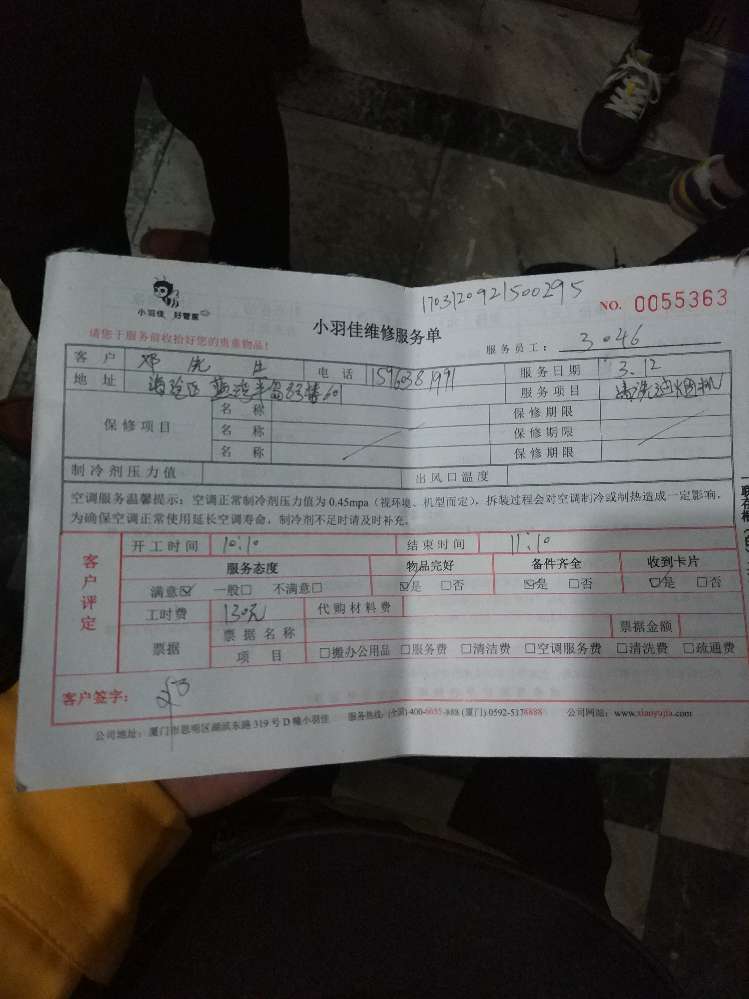 小羽佳 好管家
1703120921500295
NO. 0055363
小羽佳维修服务单
请您于服务前收拾好您的贵重物品!
服务员工: 3046
客户 邓先生 电话 15960381991 服务日期 3.12
地址 海沧区 服务项目 清洗油烟机
保修项目
名称 保修期限
名称 保修期限
名称 保修期限
制冷剂压力值 出风口温度
空调服务温馨提示:空调正常制冷剂压力值为0.45mpa(视环境、机型而定),拆装过程会对空调制冷或制热造成一定影响,
为确保空调正常使用延长空调寿命,制冷剂不足时请及时补充。
客户评定
开工时间 10:10 结束时间 11:10
服务态度 物品完好 备件齐全 收到卡片
满意☑ 一般□ 不满意□ ☑是 □否 ☑是 □否 ☑是 □否
工时费 130元 代购材料费
票据 票据名称 票据金额
项目 □搬办公用品 □服务费 □清洁费 □空调服务费 □清洗费 □疏通费
客户签字: 邓
公司地址:厦门市思明区湖滨东路319号D幢小羽佳 服务热线:(全国)400-6655-888 (厦门)0592-5178888 公司网站:www.xiaoyujia.com